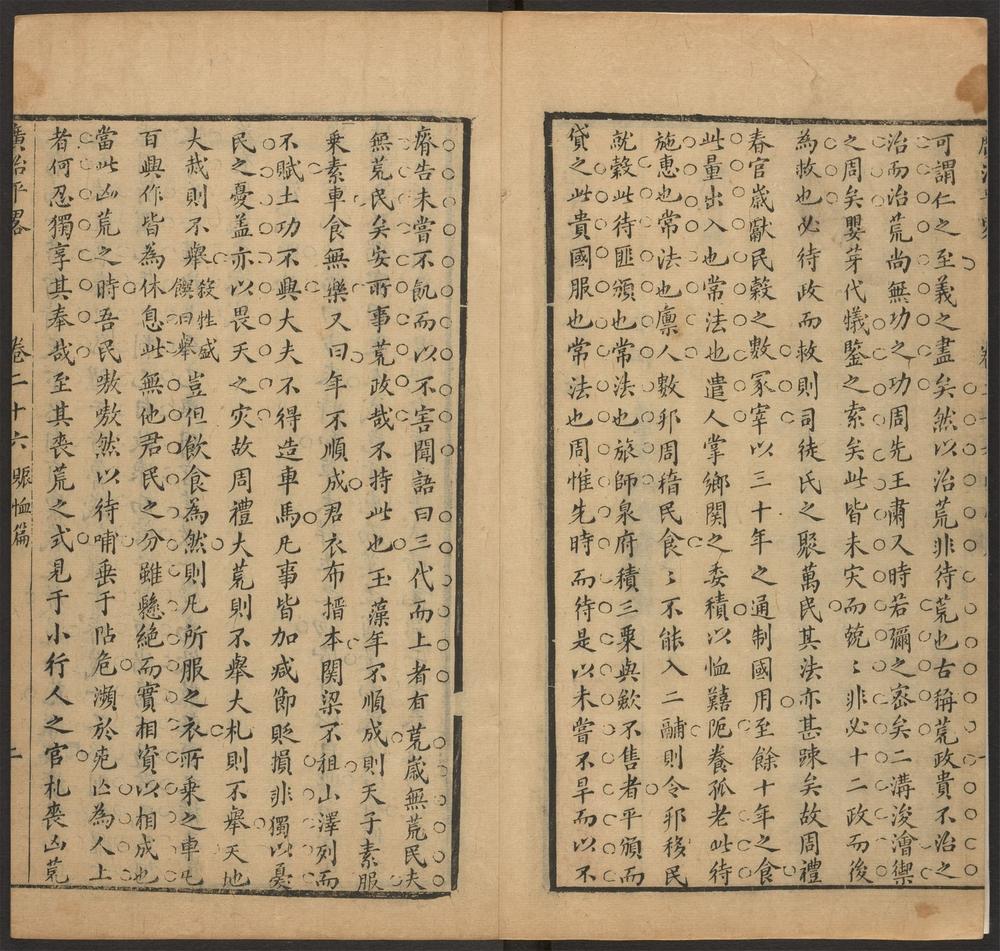 可謂仁之至義之盡矣然以治荒非待荒也古稱荒政貴不治之
治而治荒尚無功之功周先王肅乂時若彌之宻矣二溝浚澮禦
之周矣㚿芽代犠鑒之索矣此皆未灾而兢〻非必十二政而後
為救也必待政而救則司徒氏之聚萬民其法亦甚踈矣故周禮
春官歳獻民穀之數冢宰以三十年之通制國用至餘十年之食
此量出入也常法也遣人掌鄉関之委積以恤囏阨養孤老此待
施惠也常法也廪人數邦周稽民食〻不能入二鬴則令邦移民
就穀此待匪頒也常法也旅師泉府積三粟與歛不售者平頒而
貸之此貴國服也常法也周惟先時而待是以未嘗不旱而以不
瘠告未嘗不飢而以不害聞語曰三代而上者有荒歳無荒民夫
無荒民矣安所事荒政哉不持此也玉藻年不順成則天子素服
乗素車食無樂又曰年不順成君衣布搢本関梁不租山澤列而
不賦土功不興大夫不得造車馬凡事皆加减節貶損非獨以憂
民之憂盖亦以畏天之灾故周禮大荒則不舉大札則不舉天地
大烖則不舉殺牲盛饌曰舉豈但飲食為然則凡所服之衣所乗之車凡
百興作皆為休息此無他君民之分雖懸絶而實相資以相成也
當此凶荒之時吾民嗷嗷然以待哺垂于阽危瀕於死亾為人上
者何忍獨享其奉哉至其喪荒之式見于小行人之官札喪凶荒
廣治平畧 卷二十六 賑恤篇 二